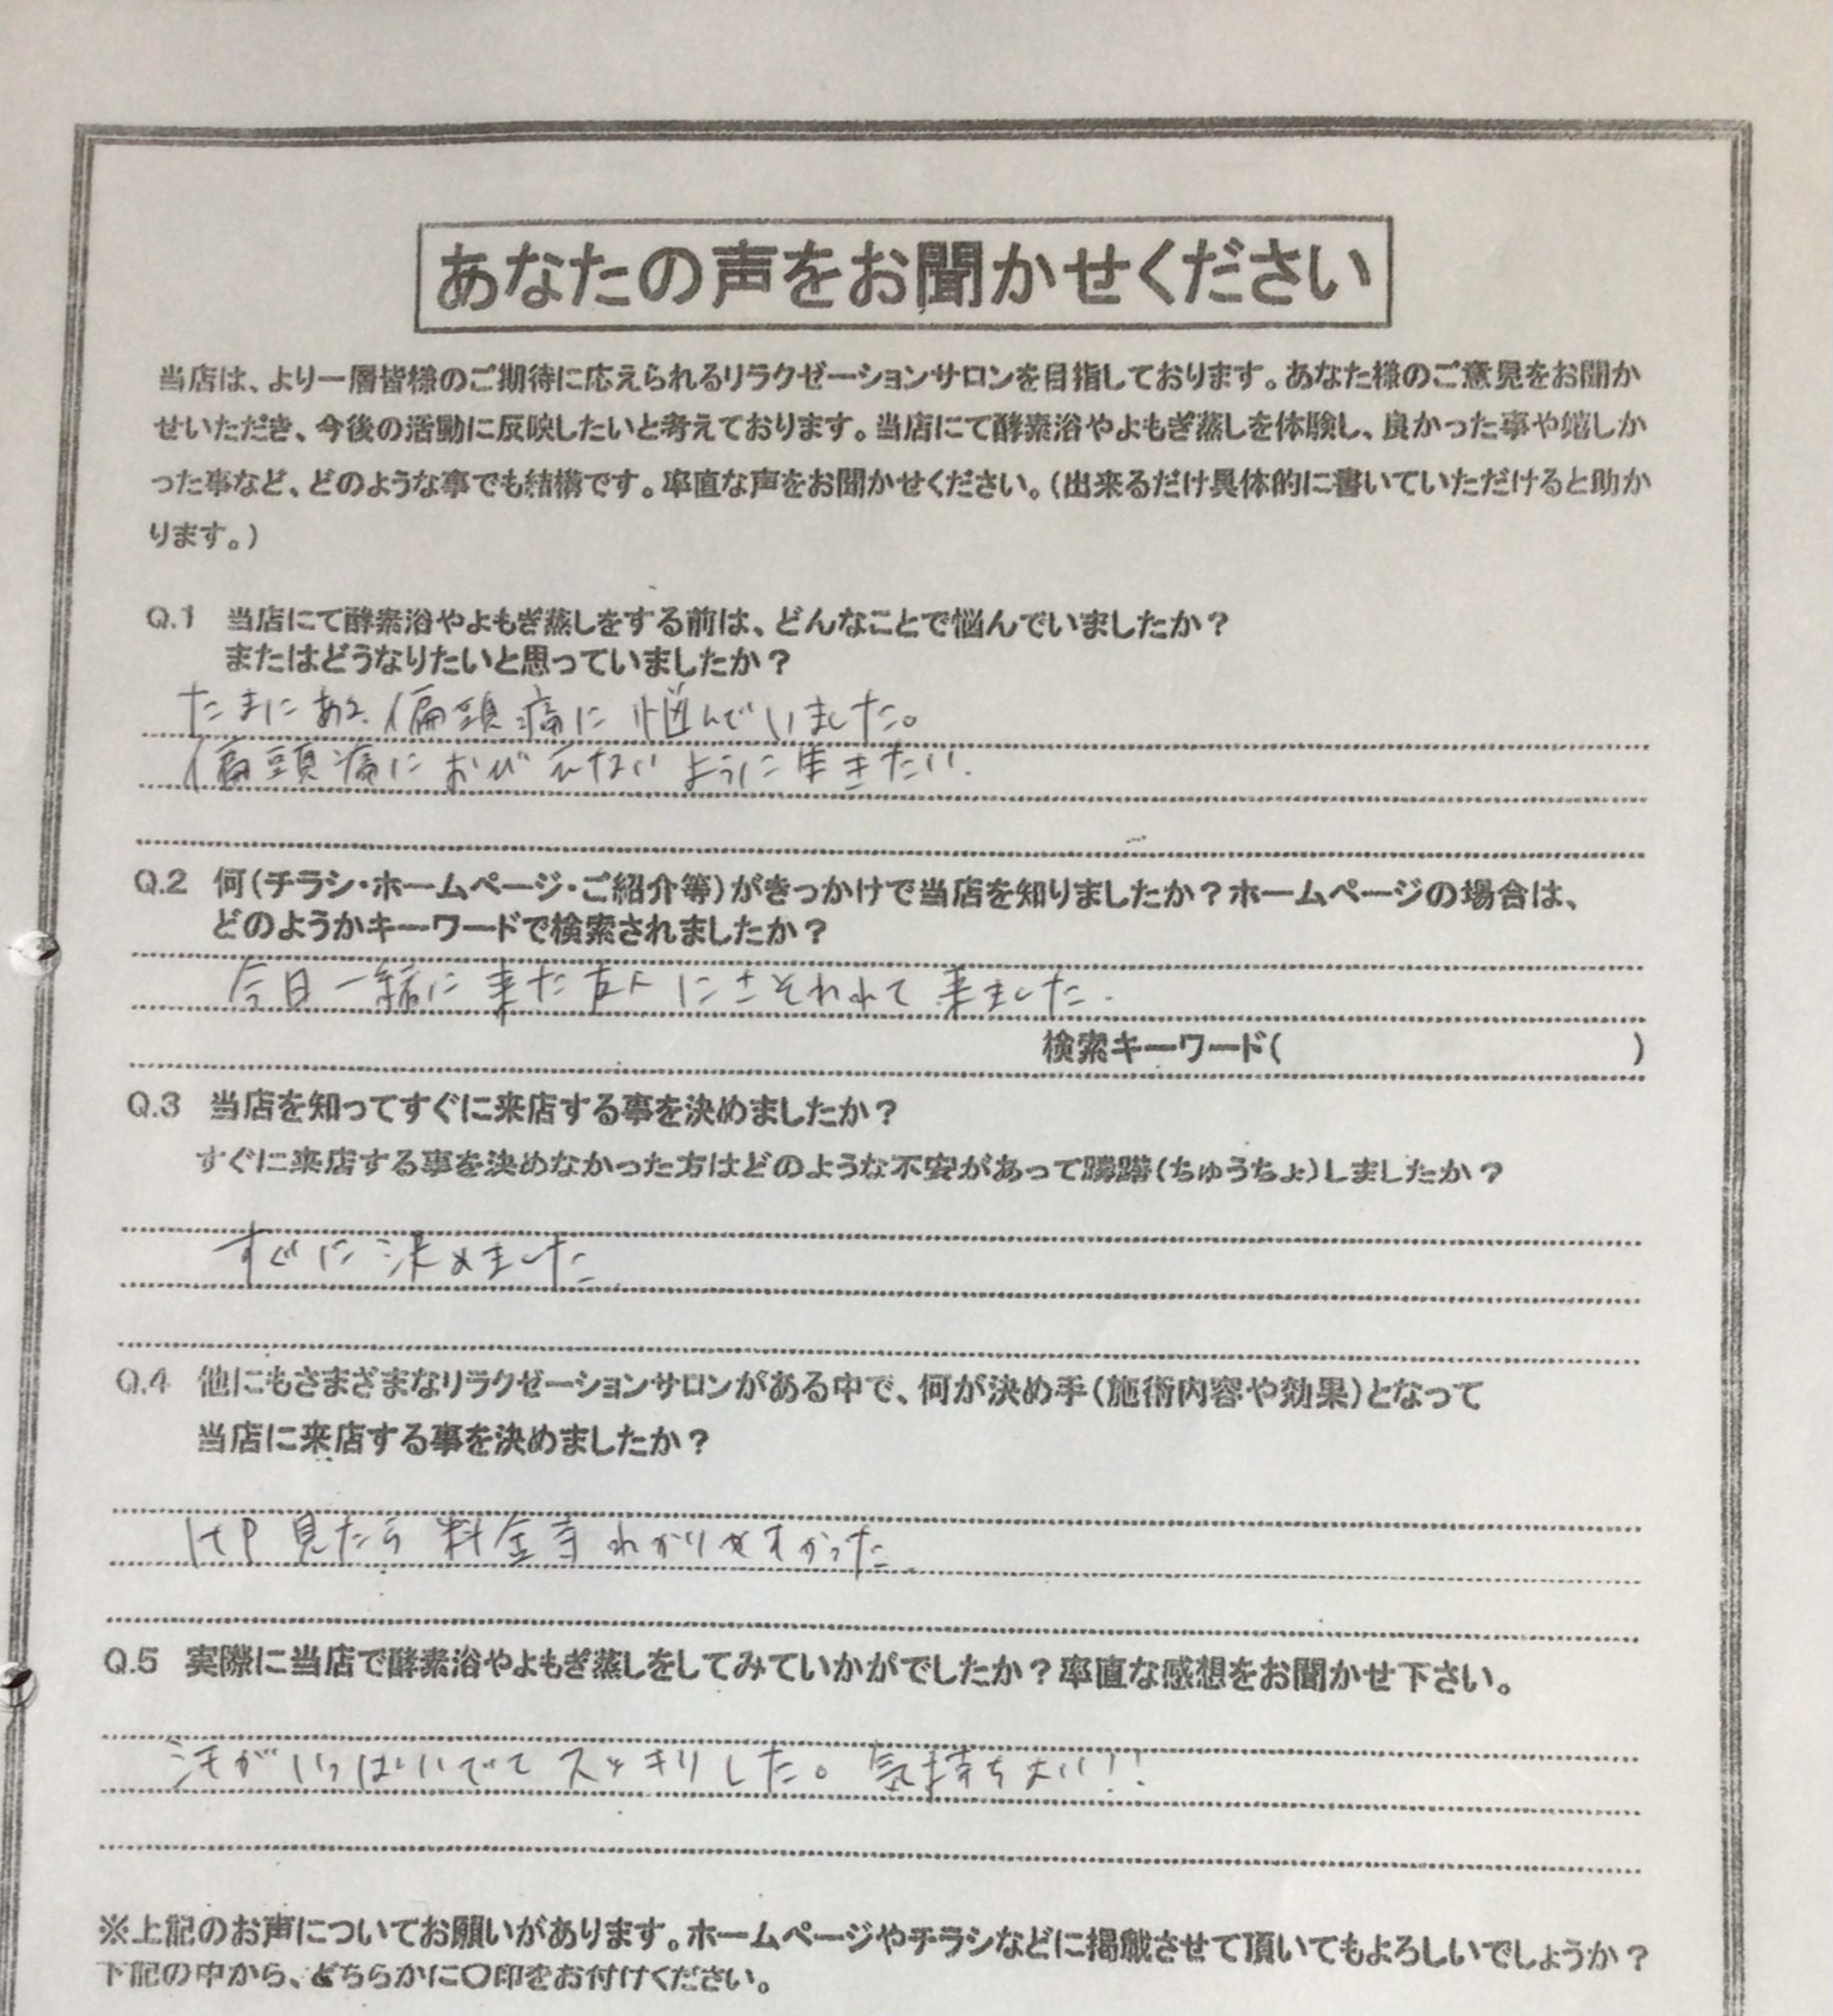 あなたの声をお聞かせください
当店は、より一層皆様のご期待に応えられるリラクゼーションサロンを目指しております。あなた様のご意見をお聞か
せいただき、今後の活動に反映したいと考えております。当店にて酵素浴やよもぎ蒸しを体験し、良かった事や嬉しか
った事など、どのような事でも結構です。率直な声をお聞かせください。(出来るだけ具体的に書いていただけると助か
ります。)
Q.1 当店にて酵素浴やよもぎ蒸しをする前は、どんなことで悩んでいましたか?
またはどうなりたいと思っていましたか?
たまにある偏頭痛に悩んでいました。
偏頭痛におびえないように生きたい.
Q.2 何(チラシ・ホームページ・ご紹介等)がきっかけで当店を知りましたか?ホームページの場合は、
どのようかキーワードで検索されましたか?
今日一緒に来た友人にさそわれて来ました.
検索キーワード( )
Q.3 当店を知ってすぐに来店する事を決めましたか?
すぐに来店する事を決めなかった方はどのような不安があって躊躇(ちゅうちょ)しましたか?
すぐに決めました
Q.4 他にもさまざまなリラクゼーションサロンがある中で、何が決め手(施術内容や効果)となって
当店に来店する事を決めましたか?
HP見たら料金等わかりやすかった
Q.5 実際に当店で酵素浴やよもぎ蒸しをしてみていかがでしたか?率直な感想をお聞かせ下さい。
汗がいっぱいでてスッキリした。気持ちよい!!
※上記のお声についてお願いがあります。ホームページやチラシなどに掲載させて頂いてもよろしいでしょうか?
下記の中から、どちらかに〇印をお付けください。